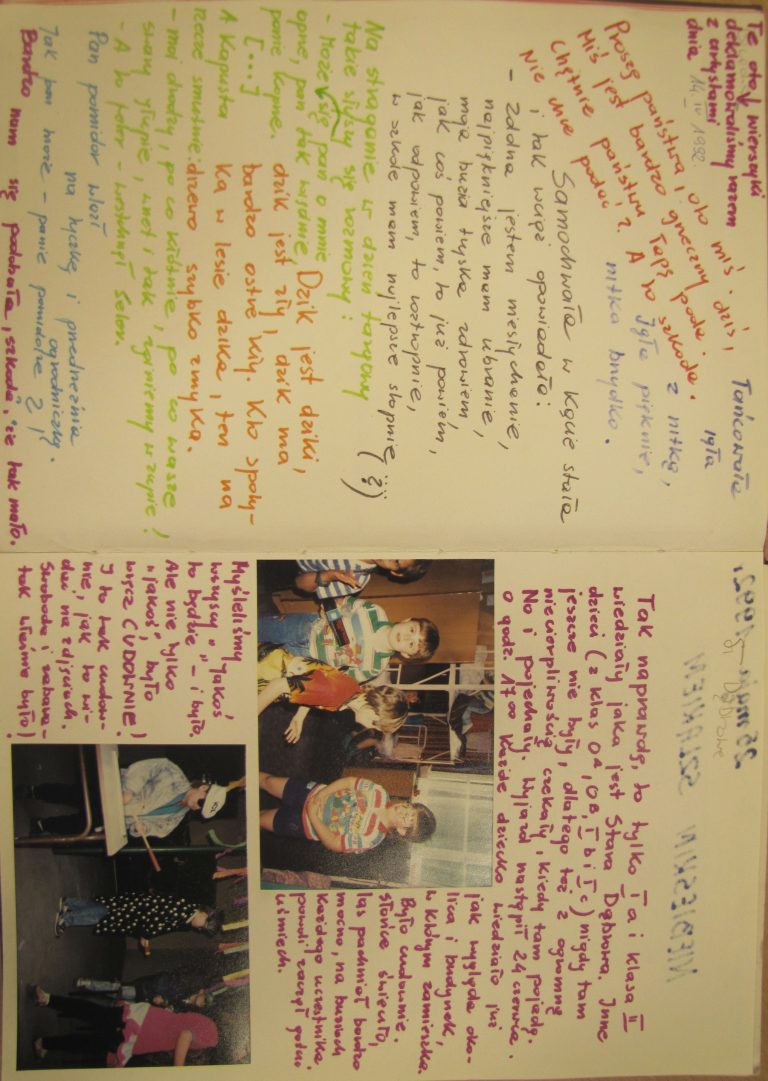 Te oto wierszyki
deklamowaliśmy razem
z artystami
dnia 14 IV 1992.
Proszę państwa, oto miś.
Miś jest bardzo grzeczny dziś,
Chętnie państwu łapę poda.
Nie chce podać? A to szkoda.
Tańcowała
igła
z nitką,
igła pięknie,
nitka brzydko.
Samochwała w kącie stała
i tak wciąż opowiadała:
- Zdolna jestem niesłychanie,
najpiękniejsze mam ubranie,
moja buzia tryska zdrowiem,
jak coś powiem, to już powiem,
jak odpowiem, to roztropnie,
w szkole mam najlepsze stopnie (?)
Na straganie w dzień targowy
takie słyszy się rozmowy:
- Może się pan o mnie
oprze, pan tak więdnie,
panie Koprze.
[...]
A Kapusta
rzecze smutnie:
- moi drodzy, po co kłótnie, po co wasze
swary głupie, wnet i tak zginiemy w zupie!
- A to feler - westchnął seler.
Dzik jest dziki,
dzik jest zły, dzik ma
bardzo ostre kły. Kto spoty-
ka w lesie dzika, ten na
drzewo szybko zmyka.
Pan pomidor wlazł
na tyczkę i przedrzeźnia
ogrodniczkę.
Jak pan może - panie pomidorze ?!
Bardzo nam się podobało, szkoda, że tak mało.
Tak naprawdę, to tylko I a i klasa II
wiedziały jaka jest Stara Dąbrowa. Inne
dzieci (z klas OA, OB, I b i I c) nigdy tam
jeszcze nie były, dlatego też z ogromną
niecierpliwością czekały, kiedy tam pojadą.
No i pojechały. Wyjazd nastąpił 24 czerwca
o godz. 17⁰⁰ Każde dziecko wiedziało już
jak wygląda oko-
lica i budynek,
w którym zamieszka.
Było cudownie.
Słońce świeciło,
las pachniał bardzo
mocno, na buziach
każdego uczestnika
powoli zaczął gościć
uśmiech.
Myśleliśmy
wszyscy "jakoś
to będzie" - i było.
Ale nie tylko
"jakoś", było
wręcz CUDOWNIE!
I to tak cudow-
nie, jak to wi-
dać na zdjęciach.
Swoboda i zabawa -
tak właśnie było!